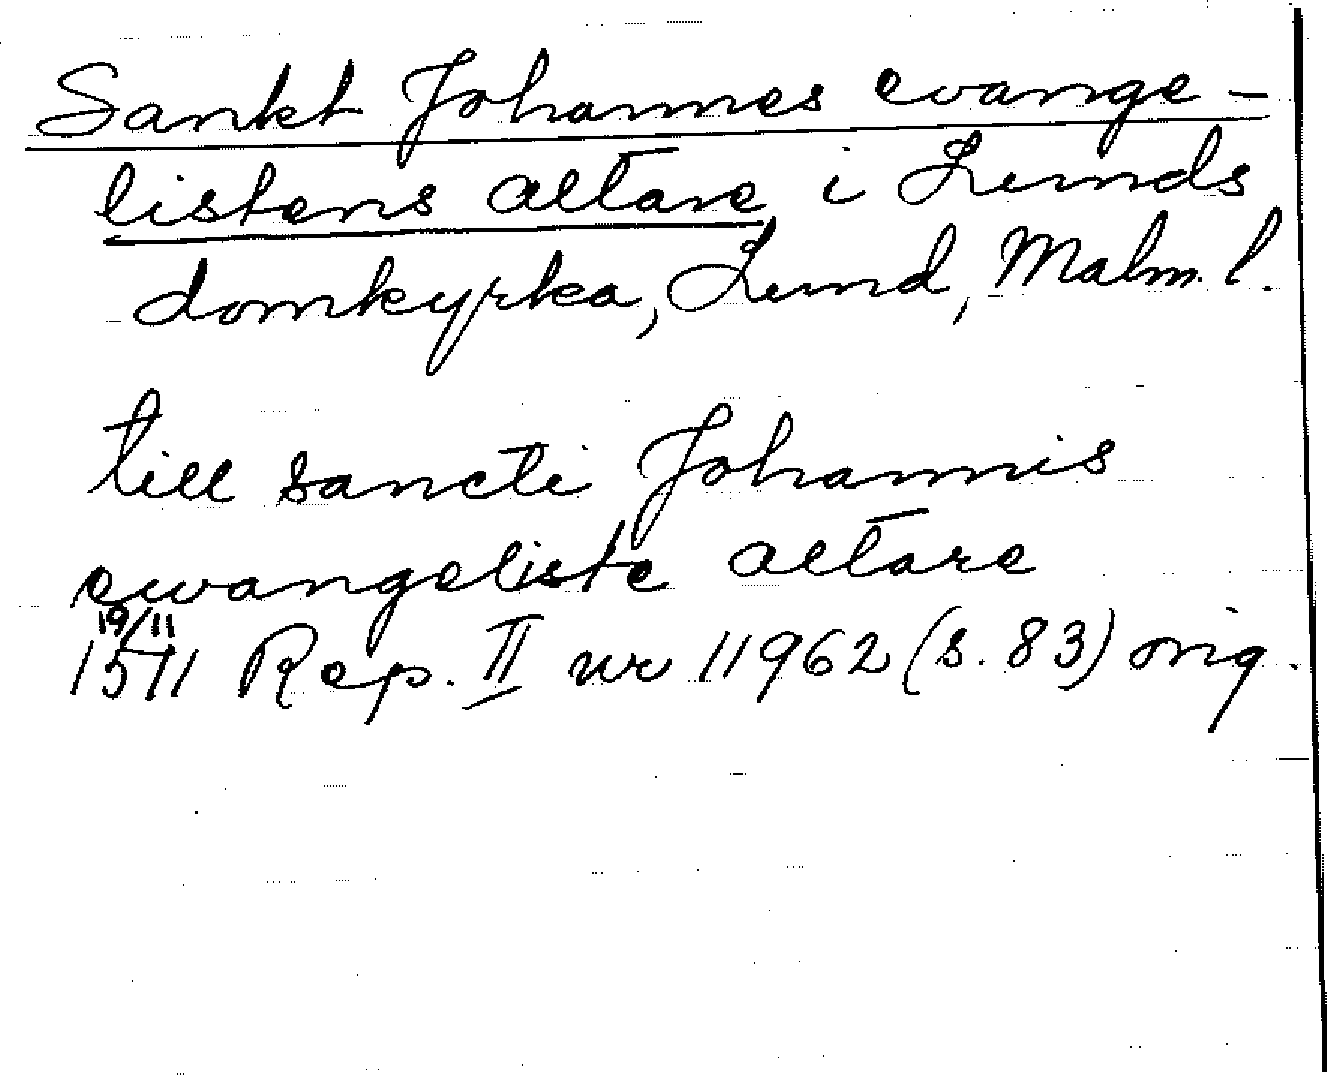 Sankt Johannes evange-
listens altare i Lunds
domkyrka, Lund, Malm. l.
till sancti Johannis
ewangeliste altare
19/11
1511 Rep. II nr 11962 (s. 83) orig.